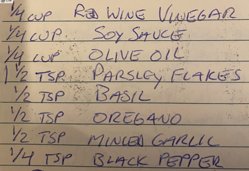 1/4 CUP RED WINE VINEGAR
1/4 CUP SOY SAUCE
1/4 CUP OLIVE OIL
1 1/2 TSP PARSLEY FLAKES
1/2 TSP BASIL
1/2 TSP OREGANO
1/2 TSP MINCED GARLIC
1/4 TSP BLACK PEPPER